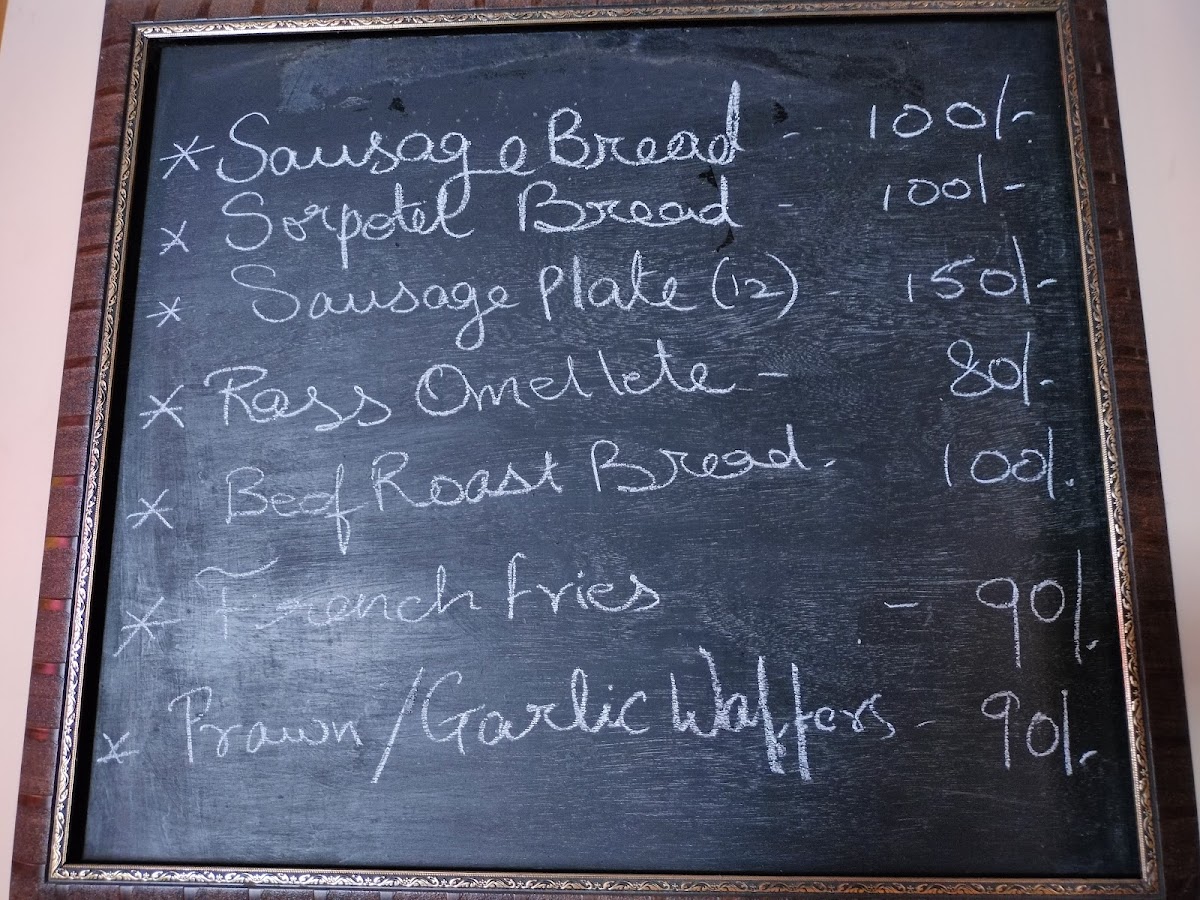 * Sausage Bread - 100/-
* Sorpotel Bread - 100/-
* Sausage Plate (12) - 150/-
* Rass Omellete - 80/-
* Beef Roast Bread - 100/-
* French fries - 90/-
* Prawn / Garlic Waffers - 90/-